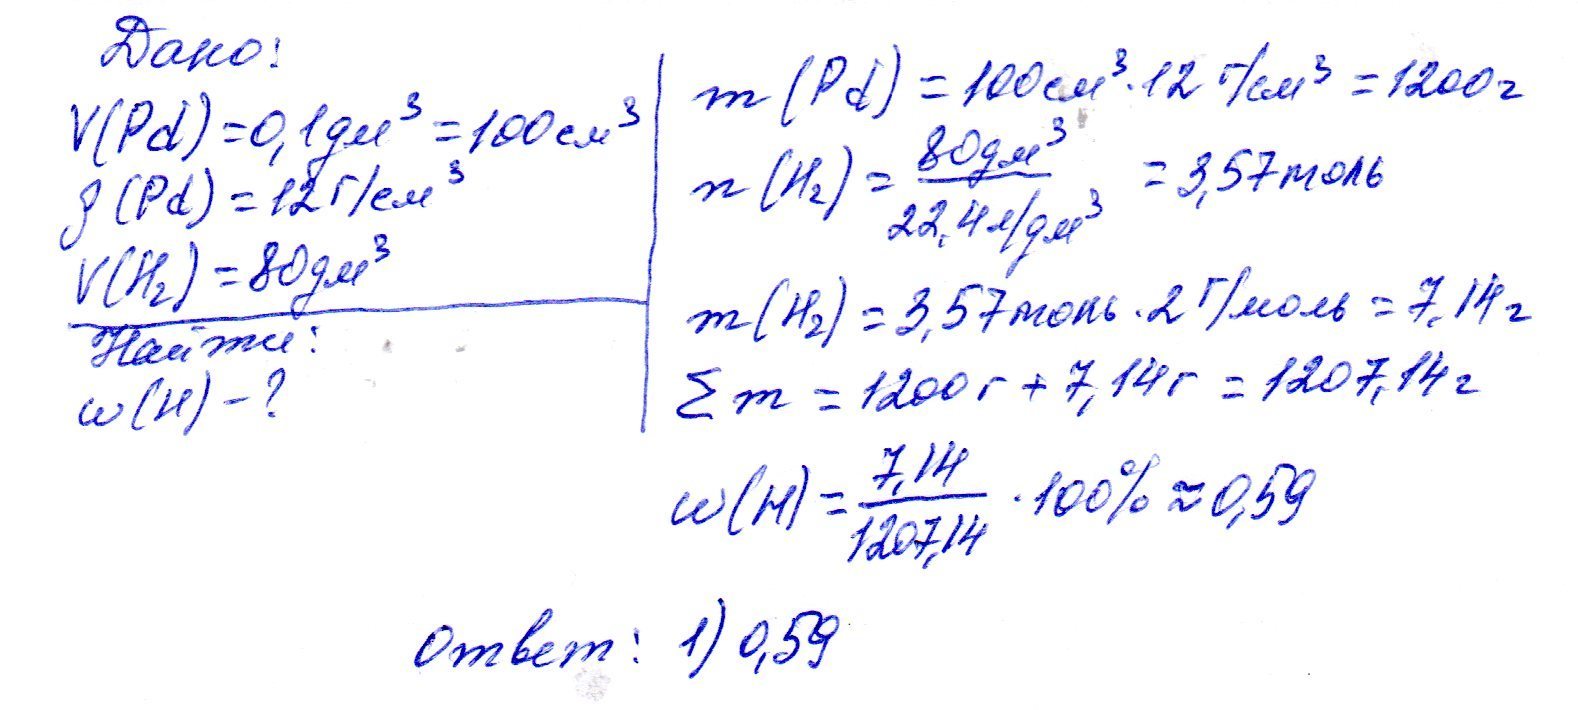 Дано:
V(Pd) = 0,1дм³ = 100см³
ρ(Pd) = 12г/см³
V(H₂) = 80дм³
Найти:
w(H) - ?
m(Pd) = 100см³ · 12 г/см³ = 1200г
n(H₂) = 80дм³ / 22,4л/дм³ = 3,57моль
m(H₂) = 3,57моль · 2 г/моль = 7,14г
Σm = 1200г + 7,14г = 1207,14г
w(H) = 7,14 / 1207,14 · 100% ≈ 0,59
Ответ: 1) 0,59